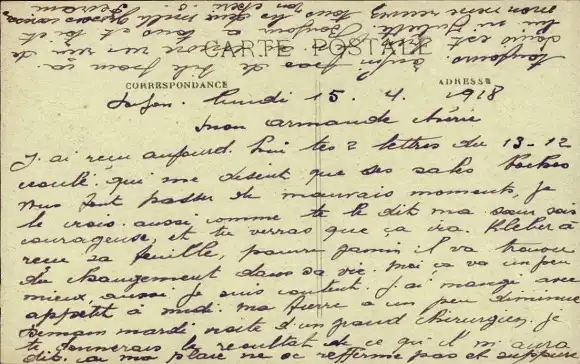 CARTE POSTALE
CORRESPONDANCE
ADRESSE
Lyon. lundi 15. 4. 1918
Mon armande chérie
J'ai reçu aujourd'hui tes 2 lettres du 13-12
écoulé, qui me disent que ses sales boches
vous font passer de mauvais moments, je
le crois aussi comme te le dit ma sœur sois
courageuse, et tu verras que ça ira. Kleber a
reçu sa feuille, pauvre gamin il va trouver
du changement dans sa vie. Moi ça va un peu
mieux aussi je suis content. J'ai mangé avec
appétit à midi. ma fièvre a un peu diminué
Demain mardi visite d'un grand chirurgien, je
te donnerais le resultat de ce qu'il m'aura
dit. car ma plaie ne se refferme pas et suppure
toujours. enfin pas de bile pour ça.